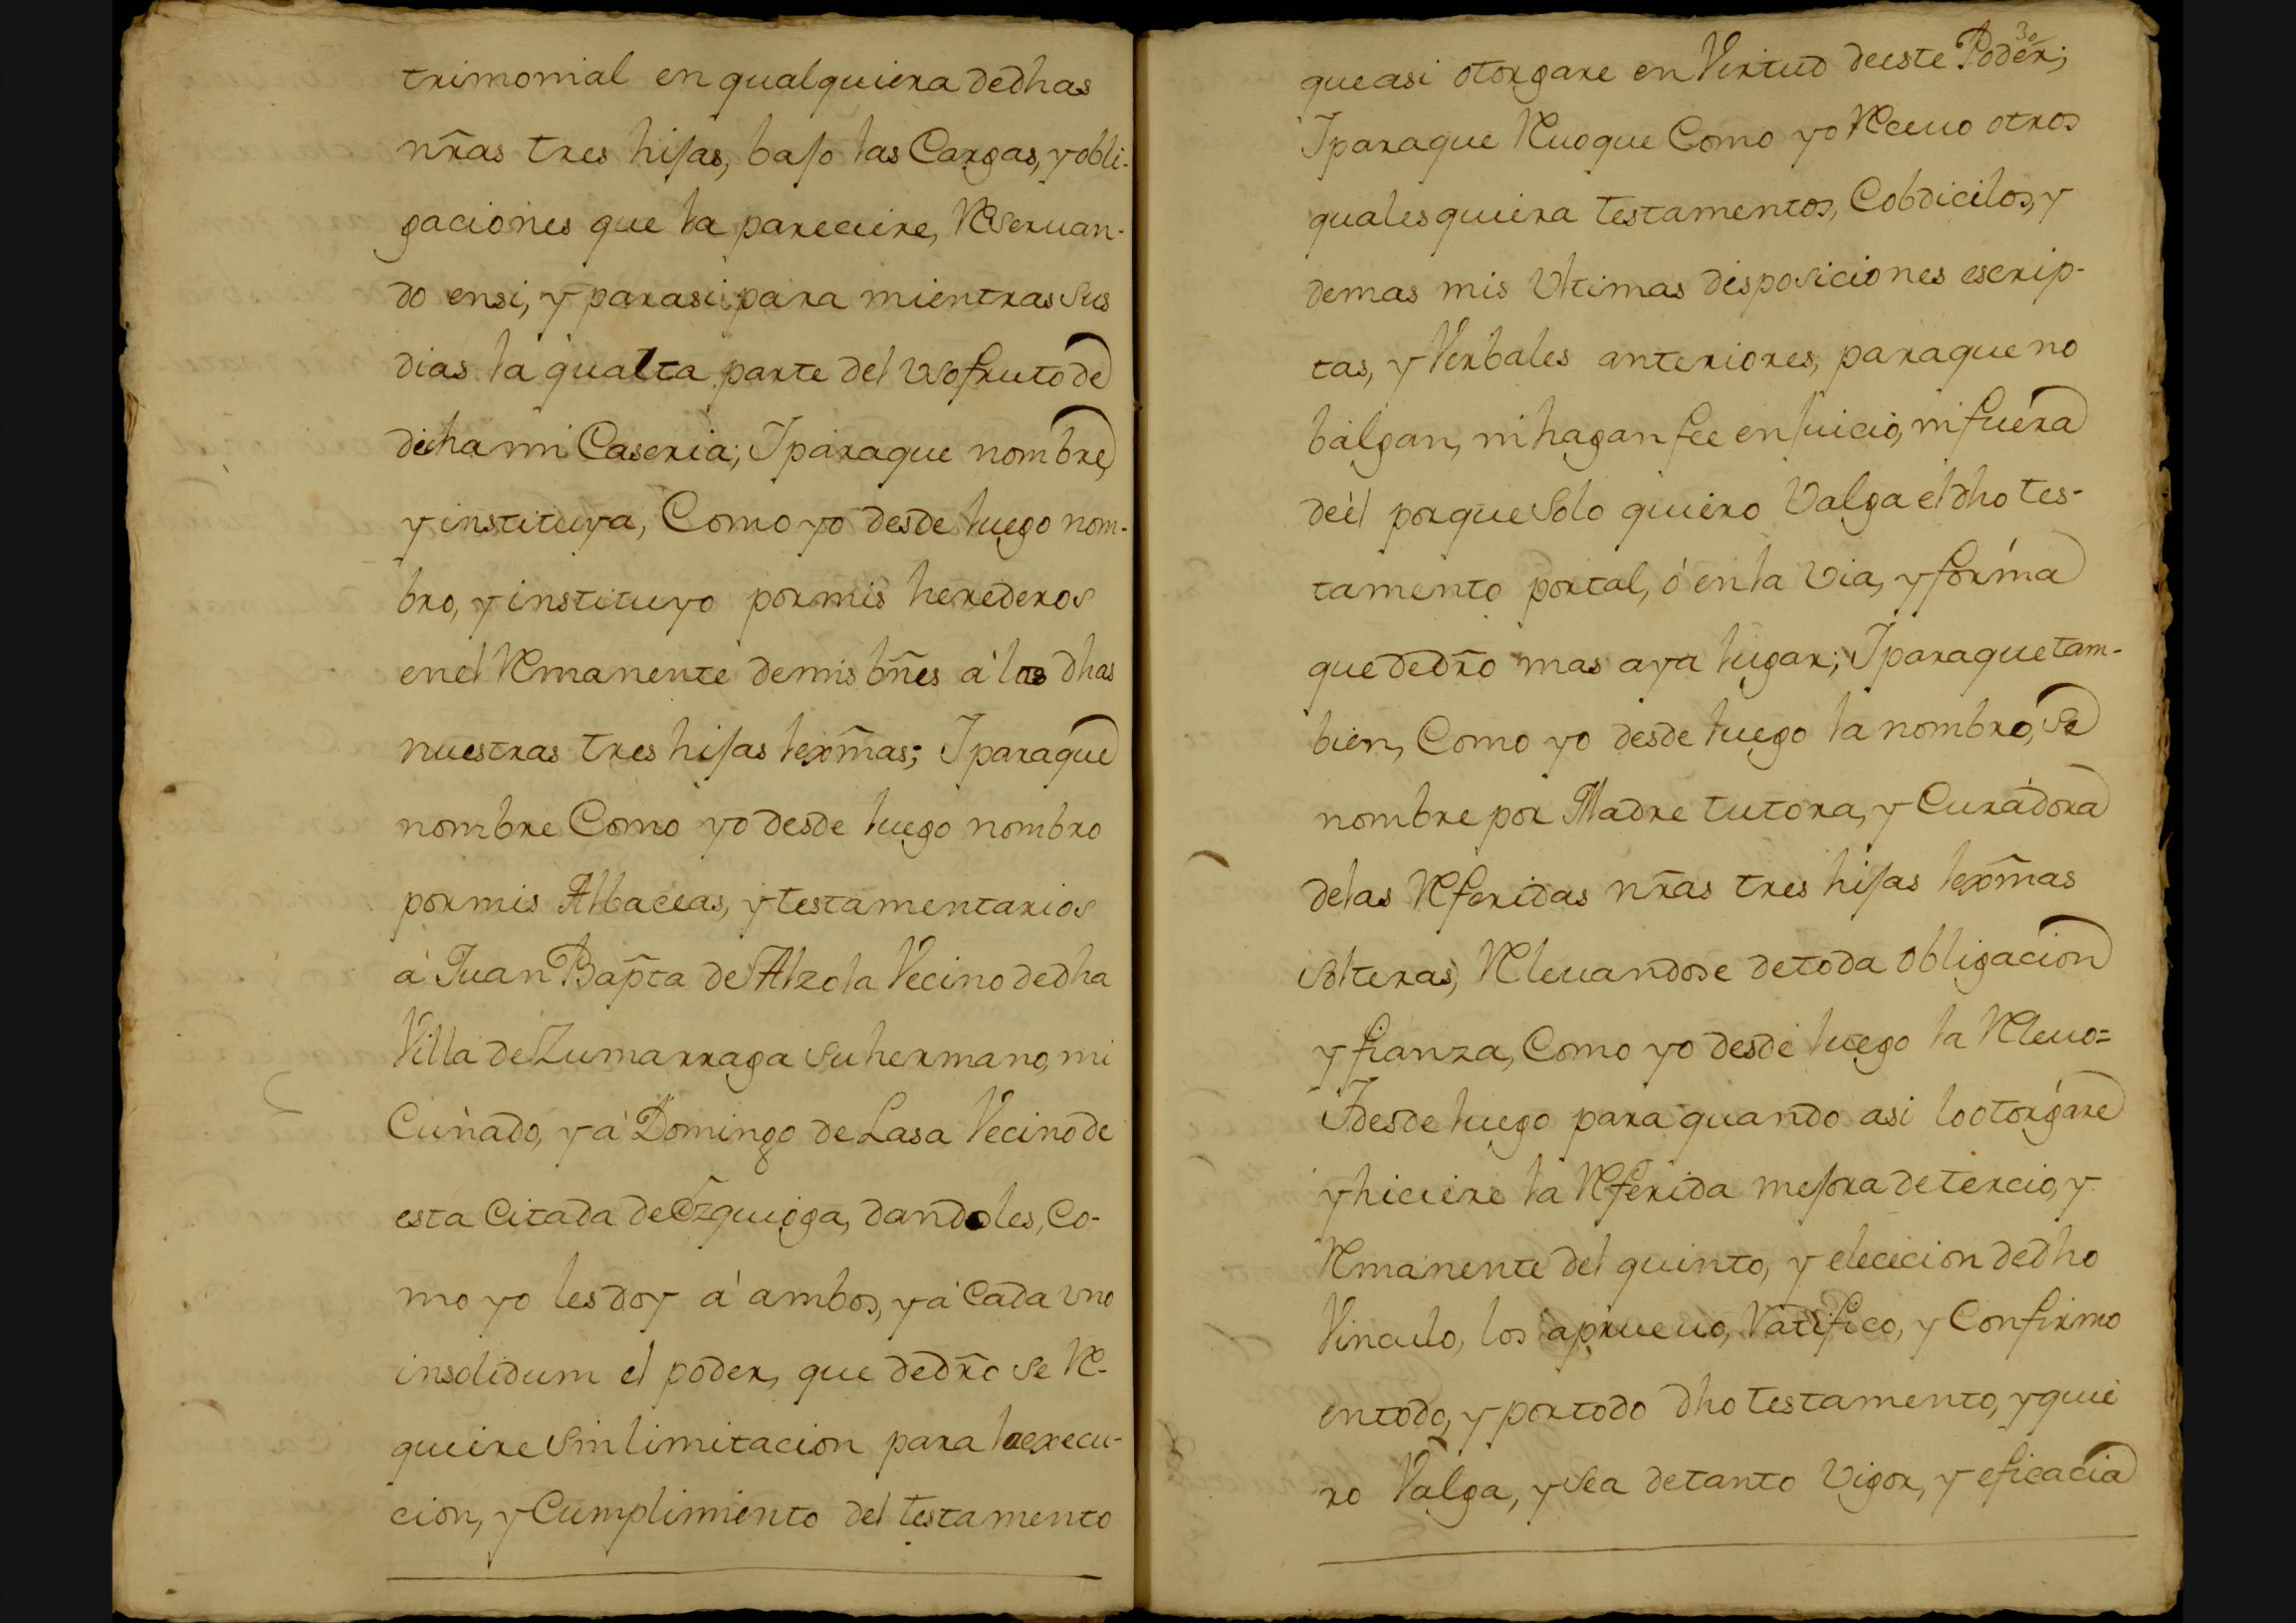 trimonial en qualquiera de dhas
nr̃as tres hijas, bajo las Cargas, y obli-
gaciones que la pareciere, Reseruan-
do en si, y para si para mientras sus
dias la qualta parte del usofruto de
dicha mi Caseria; Y para que nombre,
y instituya, Como yo desde luego nom-
bro, y instituyo por mis herederos
en el Remanente de mis bñes à las dhas
nuestras tres hijas lexm̃as; Y para que
nombre Como yo desde luego nombro
por mis Albaceas, y testamentarios
à Juan Bap̃ta de Alzola Vecino de dha
Villa de Zumarraga su hermano, mi
Cuñado, y à Domingo de Lasa Vecino de
esta Citada de Ezquioga, dandoles, Co-
mo yo les doy à ambos, y à Cada vno
insolidum el poder, que de dr̃o se Re-
quiere sin limitacion para la execu-
cion, y Cumplimiento del testamento
30
que asi otorgare en Virtud de este Poder;
Y para que Reuoque Como yo Reuoco otros
qualesquiera testamentos, Cobdicilos, y
demas mis Vltimas disposiciones escrip-
tas, y Verbales anteriores, para que no
balgan, ni hagan fee en Juicio, ni fuera
de èl porque solo quiero Valga el dho tes-
tamento por tal, ó en la Via, y forma
que de dr̃o mas aya lugar; Y para que tam-
bien, Como yo desde luego la nombro, se
nombre por Madre tutora, y Curadora
de las Referidas nr̃as tres hijas lexm̃as
solteras, Releuandose de toda obligacion
y fianza, Como yo desde luego la Releuo=
Y desde luego para quando asi lo otorgare
y hiciere la Referida mejora de tercio, y
Remanente del quinto, y eleccion de dho
Vinculo, los aprueuo, Ratifico, y Confirmo
en todo, y por todo dho testamento, y quie
ro Valga, y sea de tanto Vigor, y eficacia